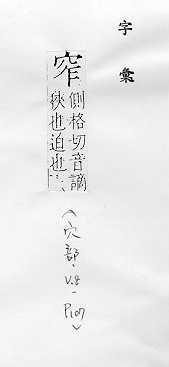 字彙
窄
側格切音謫
狹也迫也…
(穴部.V.8-P107)